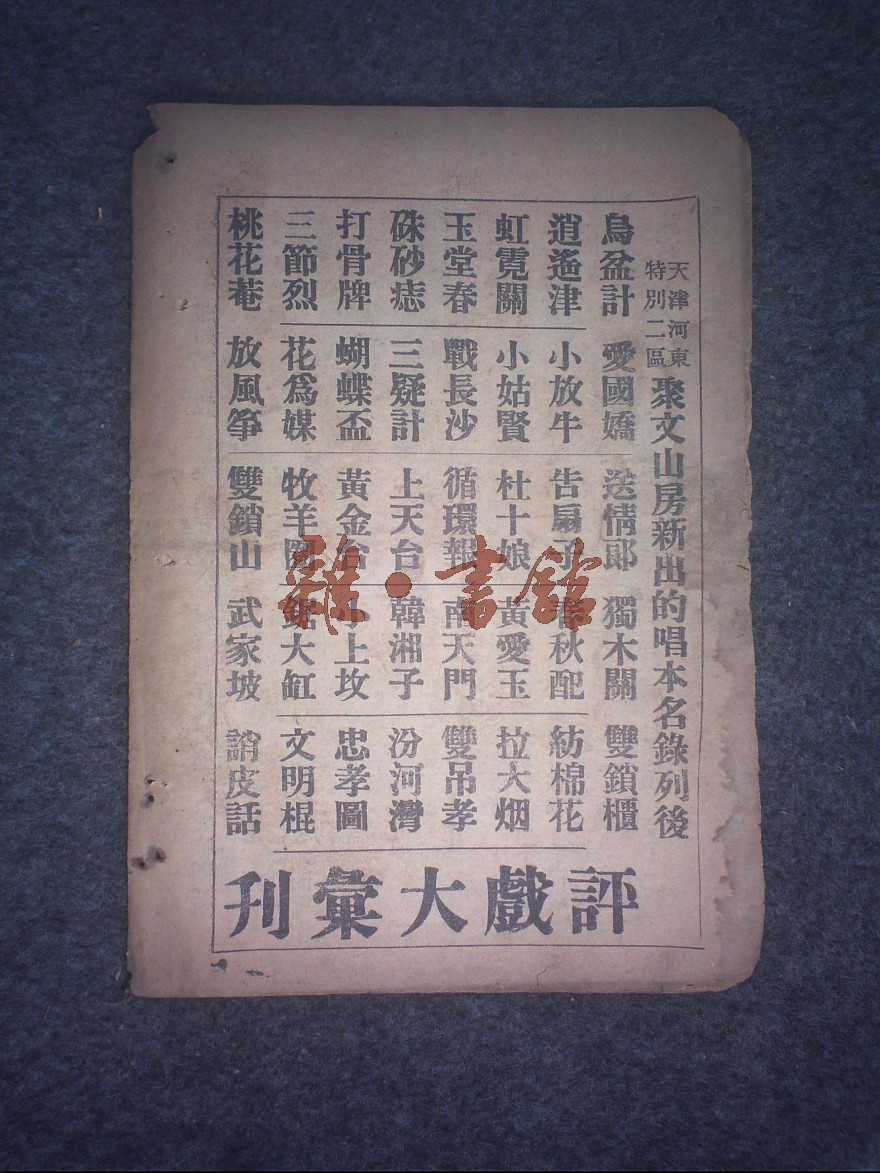 天津河東
特別二區
聚文山房新出的唱本名錄列後
烏盆計 愛國嬌 送情郎 獨木關 雙鎖櫃
逍遙津 小放牛 告扇子 春秋配 紡棉花
虹霓關 小姑賢 杜十娘 黃愛玉 拉大烟
玉堂春 戰長沙 循環報 南天門 雙吊孝
硃砂痣 三疑計 上天台 韓湘子 汾河灣
打骨牌 蝴蝶盃 黃金台 小上坟 忠孝圖
三節烈 花爲媒 牧羊圈 鋸大缸 文明棍
桃花菴 放風箏 雙鎖山 武家坡 誚皮話
評戲大彙刊
雜·書館